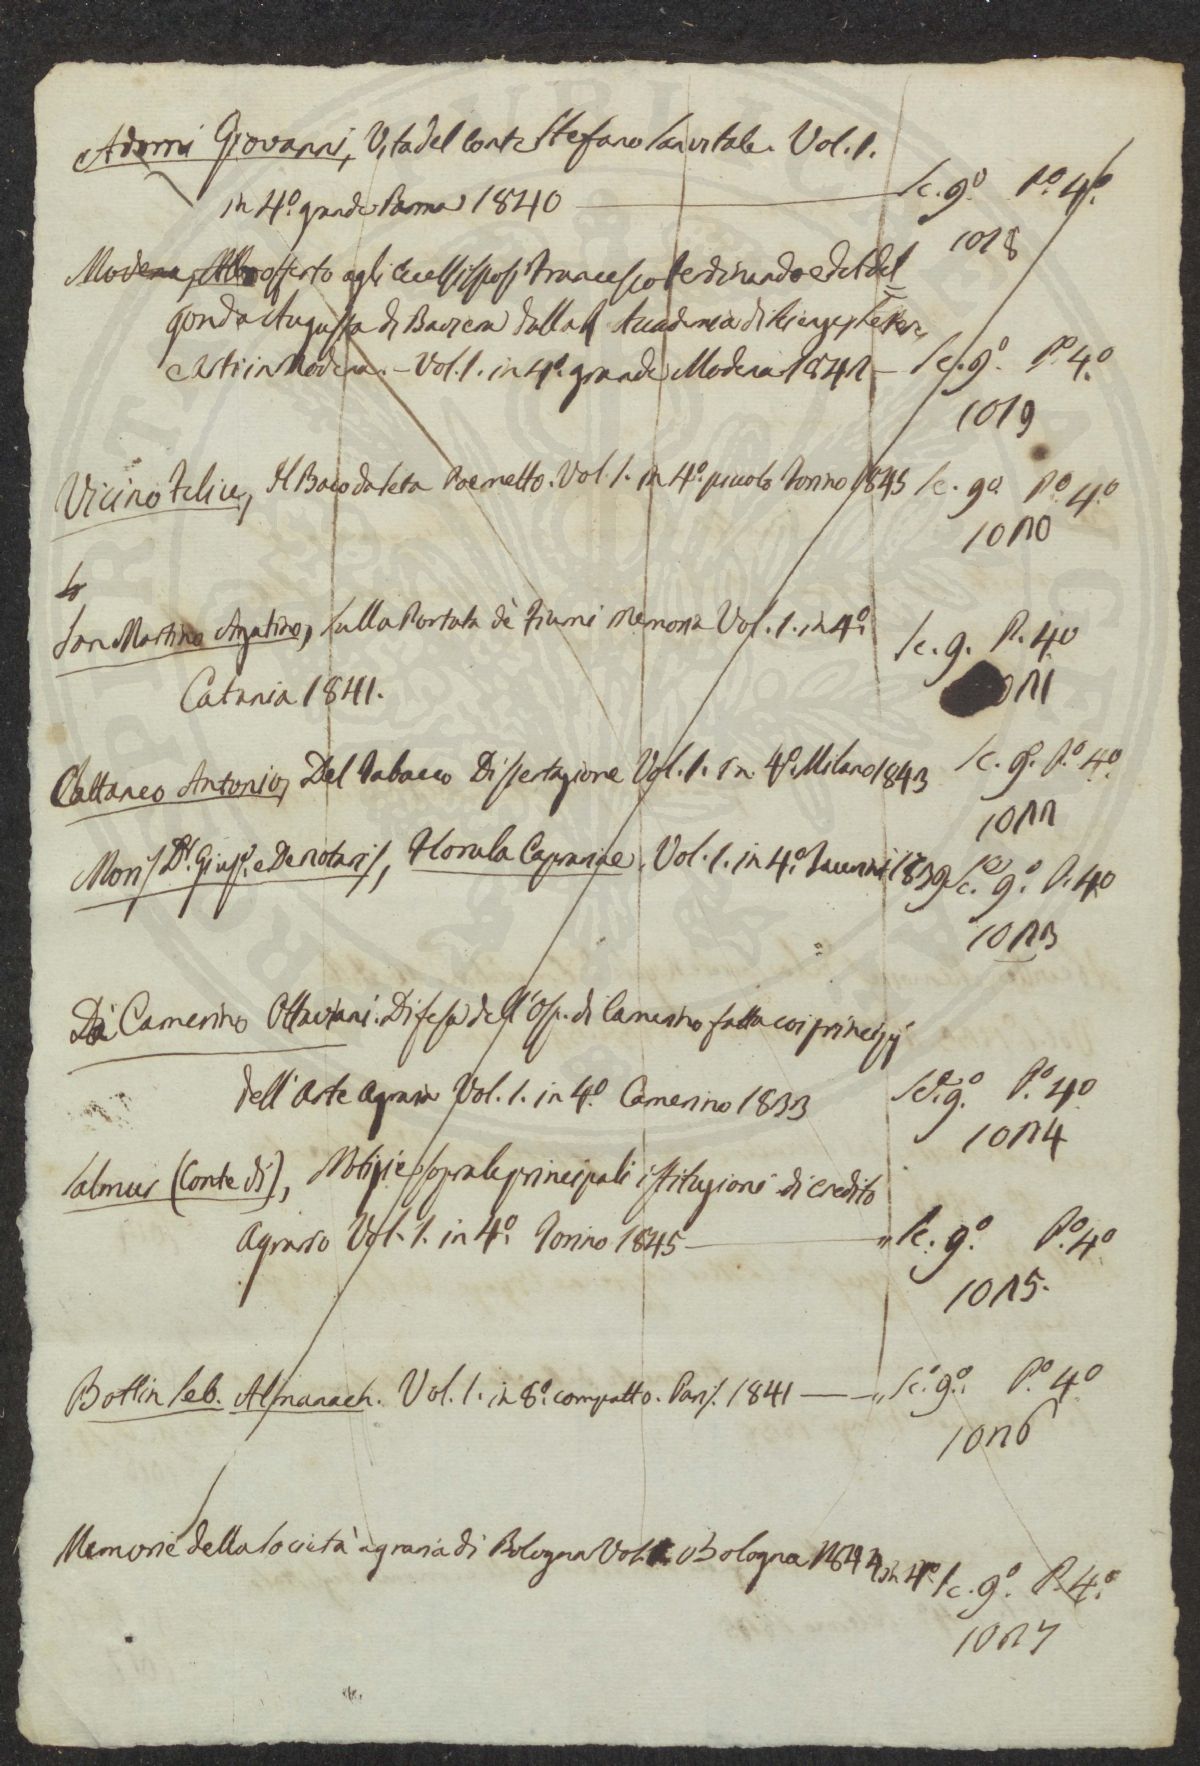 Adorni Giovanni, Vita del Conte Stefano Sanvitale. Vol. 1.
in 4.º grande Parma 1840 Sc. 9º Pº. 4º.
1018
Modena, Albo offerto agli Eccelsi Sposi Francesco Ferdinando ed Adel
gonda Augusta di Baviera dalla R Accademia di Scienze, Lettere,
e Arti in Modena. – Vol. 1. in 4º. grande Modena 1842 – Sc. 9º. Pº 4.º
1019
Vicino Felice, Il Baco da seta Poemetto. Vol. 1. in 4.º piccolo Torino 1845 Sc. 9º. Pº 4.º
1020
San Martino Agatino, Sulla Portata de' Fiumi Memoria Vol. 1. in 4º.
Sc. 9. P. 4º
1021
Catania 1841.
Cattaneo Antonio, Del Tabacco Dissertazione Vol. 1. in 4º. Milano 1843 Sc. 9º. Pº 4º.
1022
Moris Dr. Gius. e Denotaris, Florula Caprariae. Vol. 1. in 4º. Taurini 1839 Sc. 9º. P. 4º
1023
Da Camerino Ottaviani. Difesa dell' Osp. di Camerino fatta coi principj
dell' Arte Agraria Vol. 1. in 4º. Camerino 1833 Sc. 9º. Pº. 4º
1024
Salmour (Conte di), Notizie sopra le principali istituzioni di credito
Agrario Vol. 1. in 4º. Torino 1845 — " Sc. 9º. Pº. 4º
1025.
Bottin Seb. Almanach. Vol. 1. in 8º. compatto. Paris. 1841 — " Sc. 9º. Pº 4º
1026
Memorie della Società agraria di Bologna Vol. Bologna 1844 in 4º Sc. 9º. P. 4º.
1027